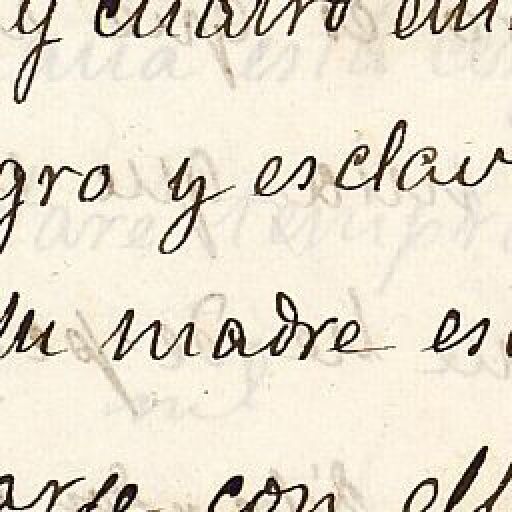 y cuatro
gro y esclav
su madre es
arse con ell